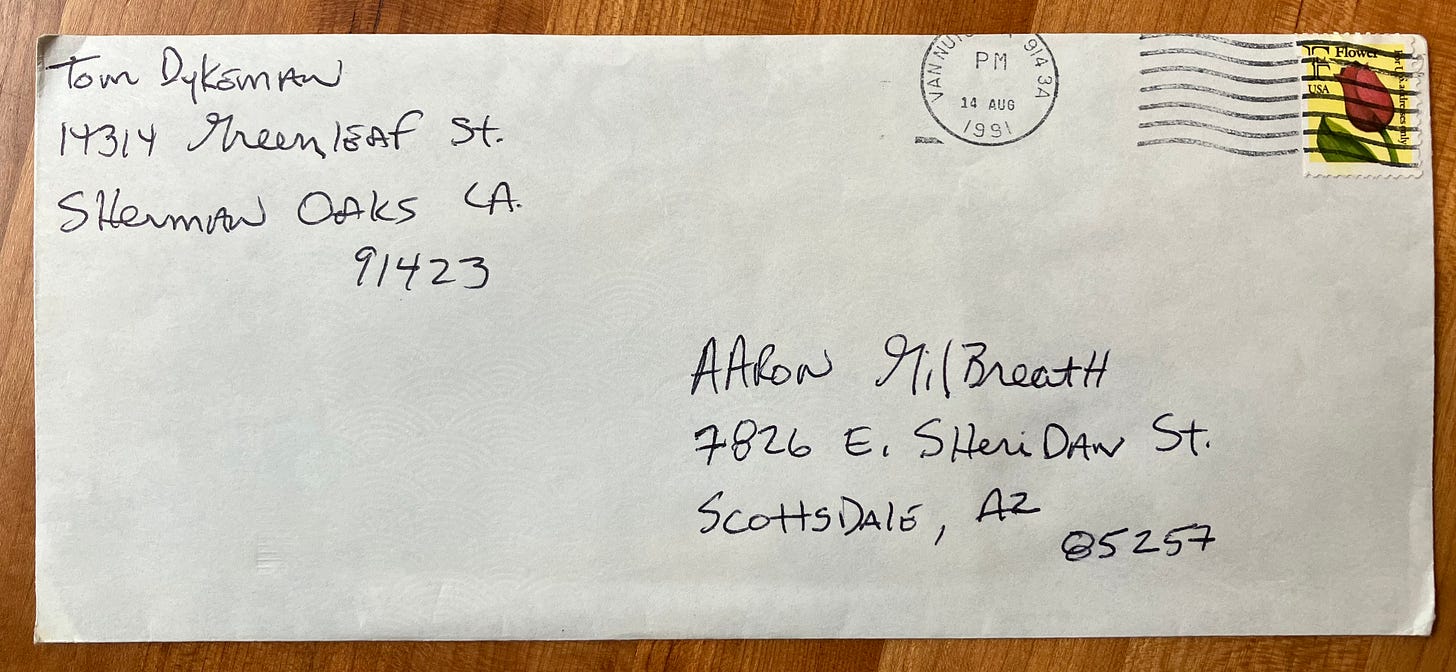 Tom Dykeman
14314 Greenleaf St.
Sherman Oaks CA.
91423
VAN NUYS 914 3A
PM
14 AUG
1991
F Flower
USA
For U.S. addresses only
AARON GilBreatH
7826 E. SHeriDAN St.
ScottsDAlE, AZ
85257